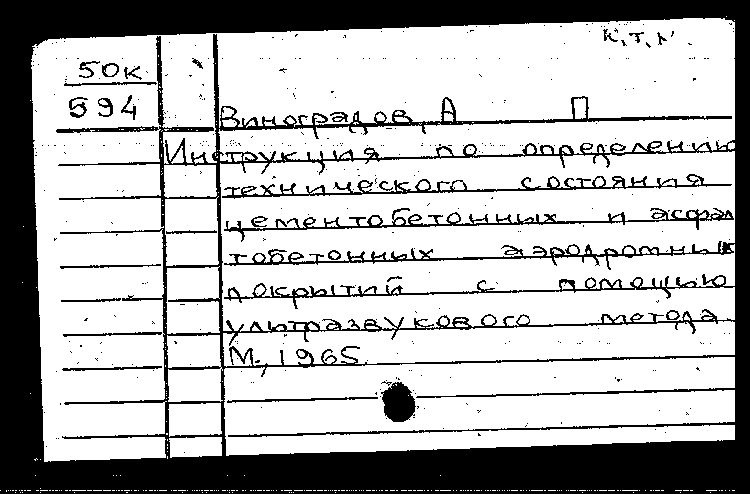 К.Т.
50к
594
Виноградов, А П
Инструкция по определению
технического состояния
цементобетонных и асфал
тобетонных аэродромных
покрытий с помощью
ультразвукового метода
М., 1965